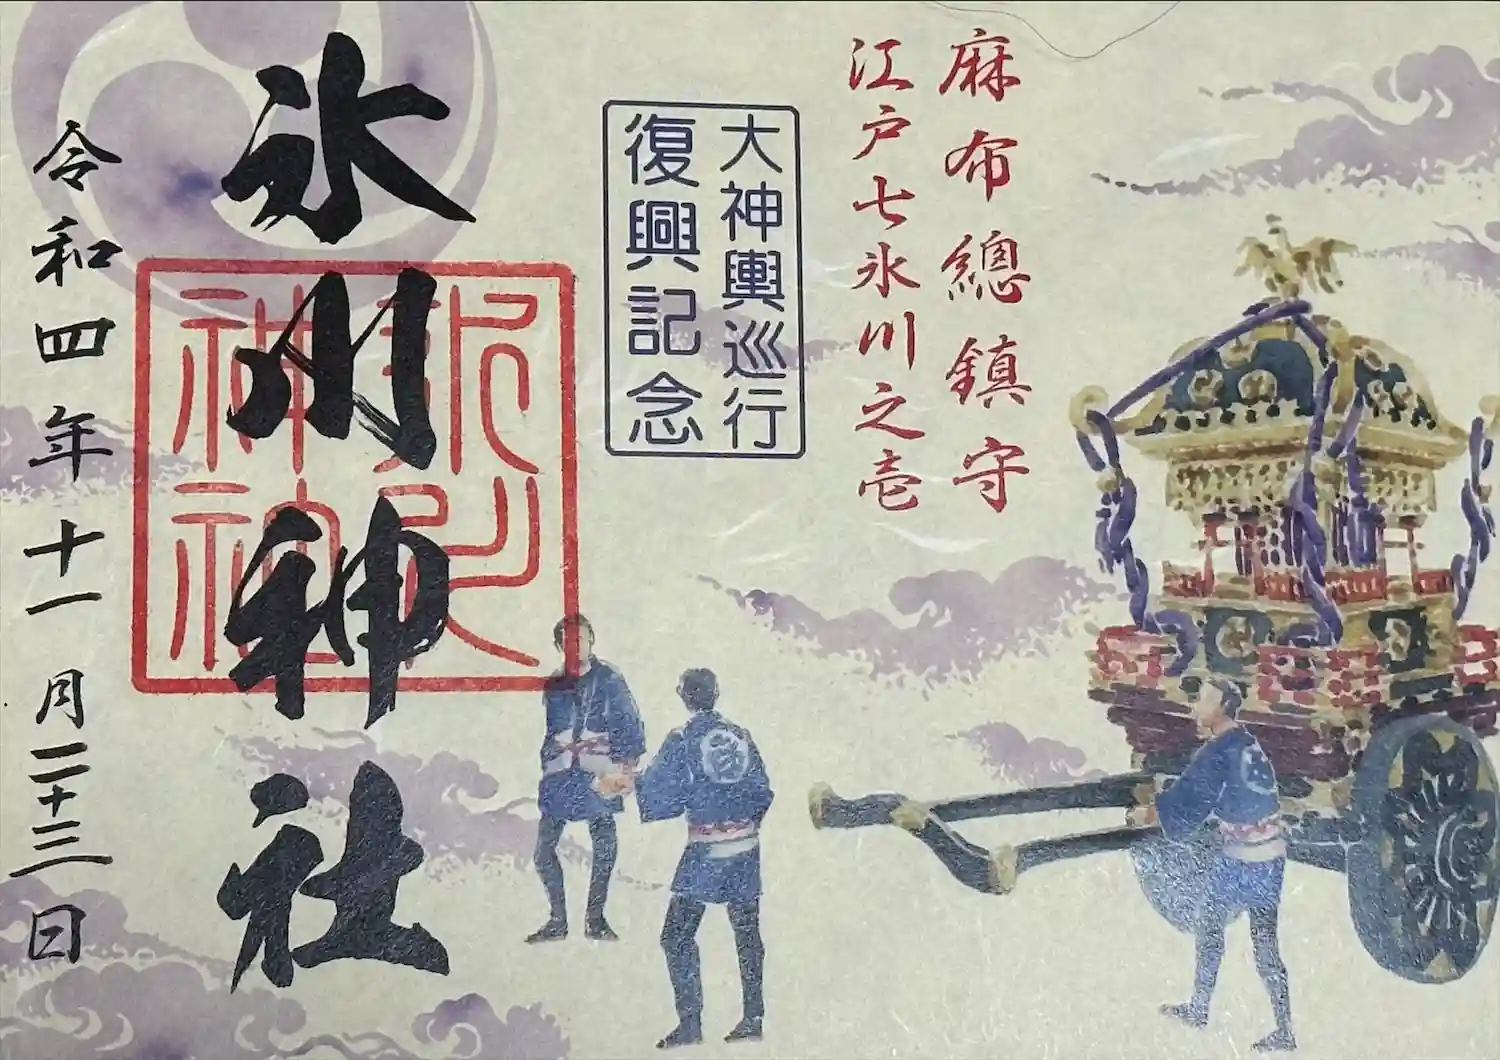 麻布總鎮守
江戸七氷川之壱
大神輿巡行
復興記念
氷川神社
氷川
神社
令和四年十一月二十三日